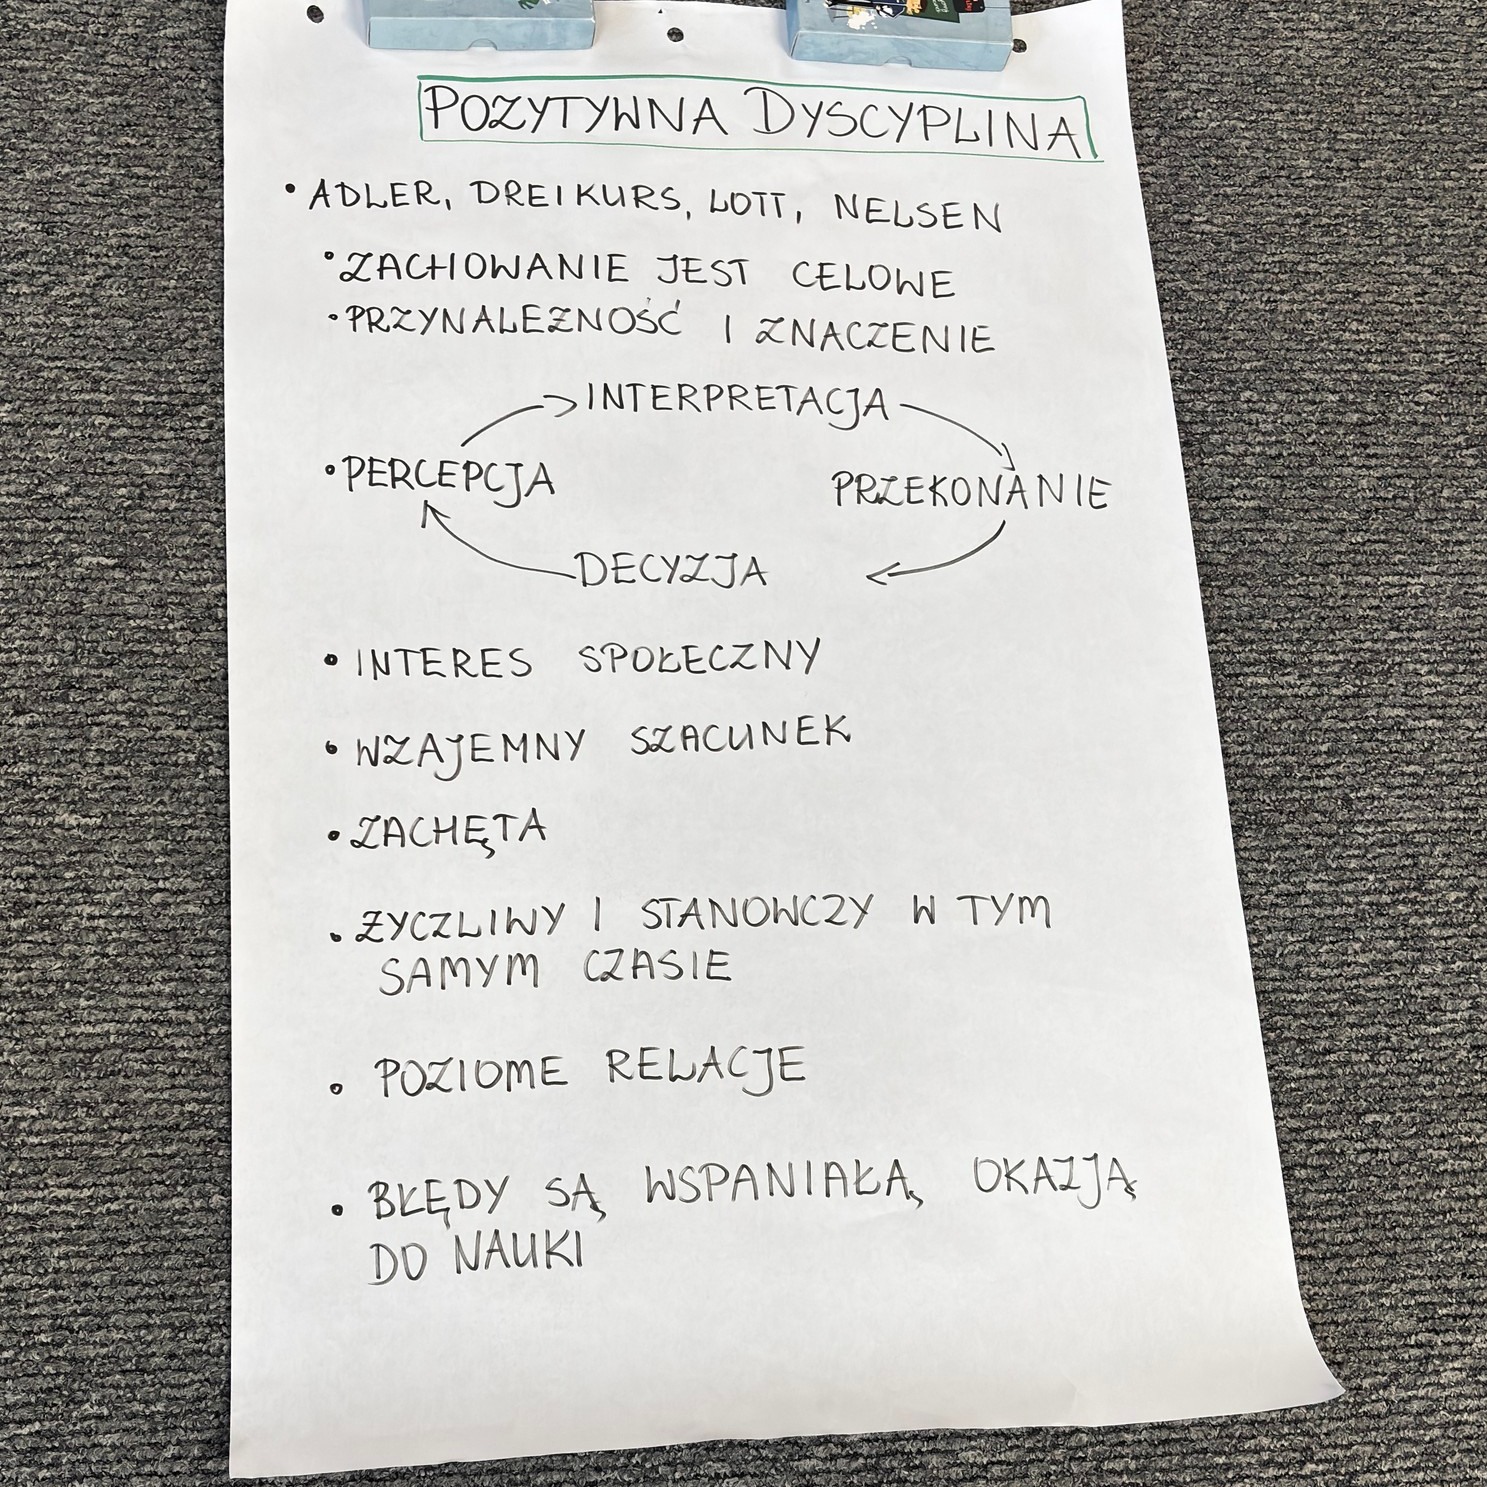 POZYTYWNA DYSCYPLINA
• ADLER, DREIKURS, LOTT, NELSEN
• ZACHOWANIE JEST CELOWE
• PRZYNALEŻNOŚĆ I ZNACZENIE
INTERPRETACJA
• PERCEPCJA PRZEKONANIE
DECYZJA
• INTERES SPOŁECZNY
• WZAJEMNY SZACUNEK
• ZACHĘTA
• ŻYCZLIWY I STANOWCZY W TYM
SAMYM CZASIE
• POZIOME RELACJE
• BŁĘDY SĄ WSPANIAŁĄ OKAZJĄ
DO NAUKI